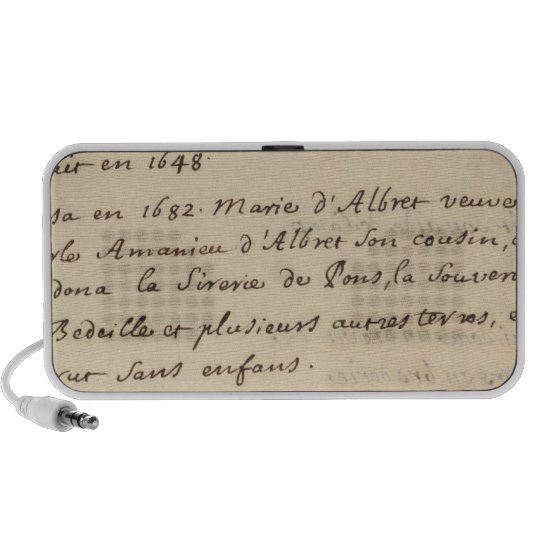 ait en 1648.
sa en 1682. Marie d'Albret veuve
rle Amanieu d'Albret son cousin,
dona la Sirerie de Pons, la Souver
Bedeille et plusieurs autres terres, e
rut sans enfans.